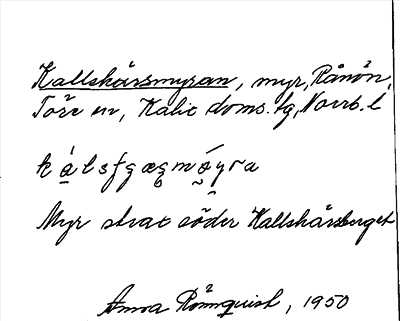 Kallskärsmyran, myr, Rånön,
Töre sn, Kalix doms. tg, Norrb. l
Myr strax söder Kallskärsberget
Anna Rönnquist, 1950